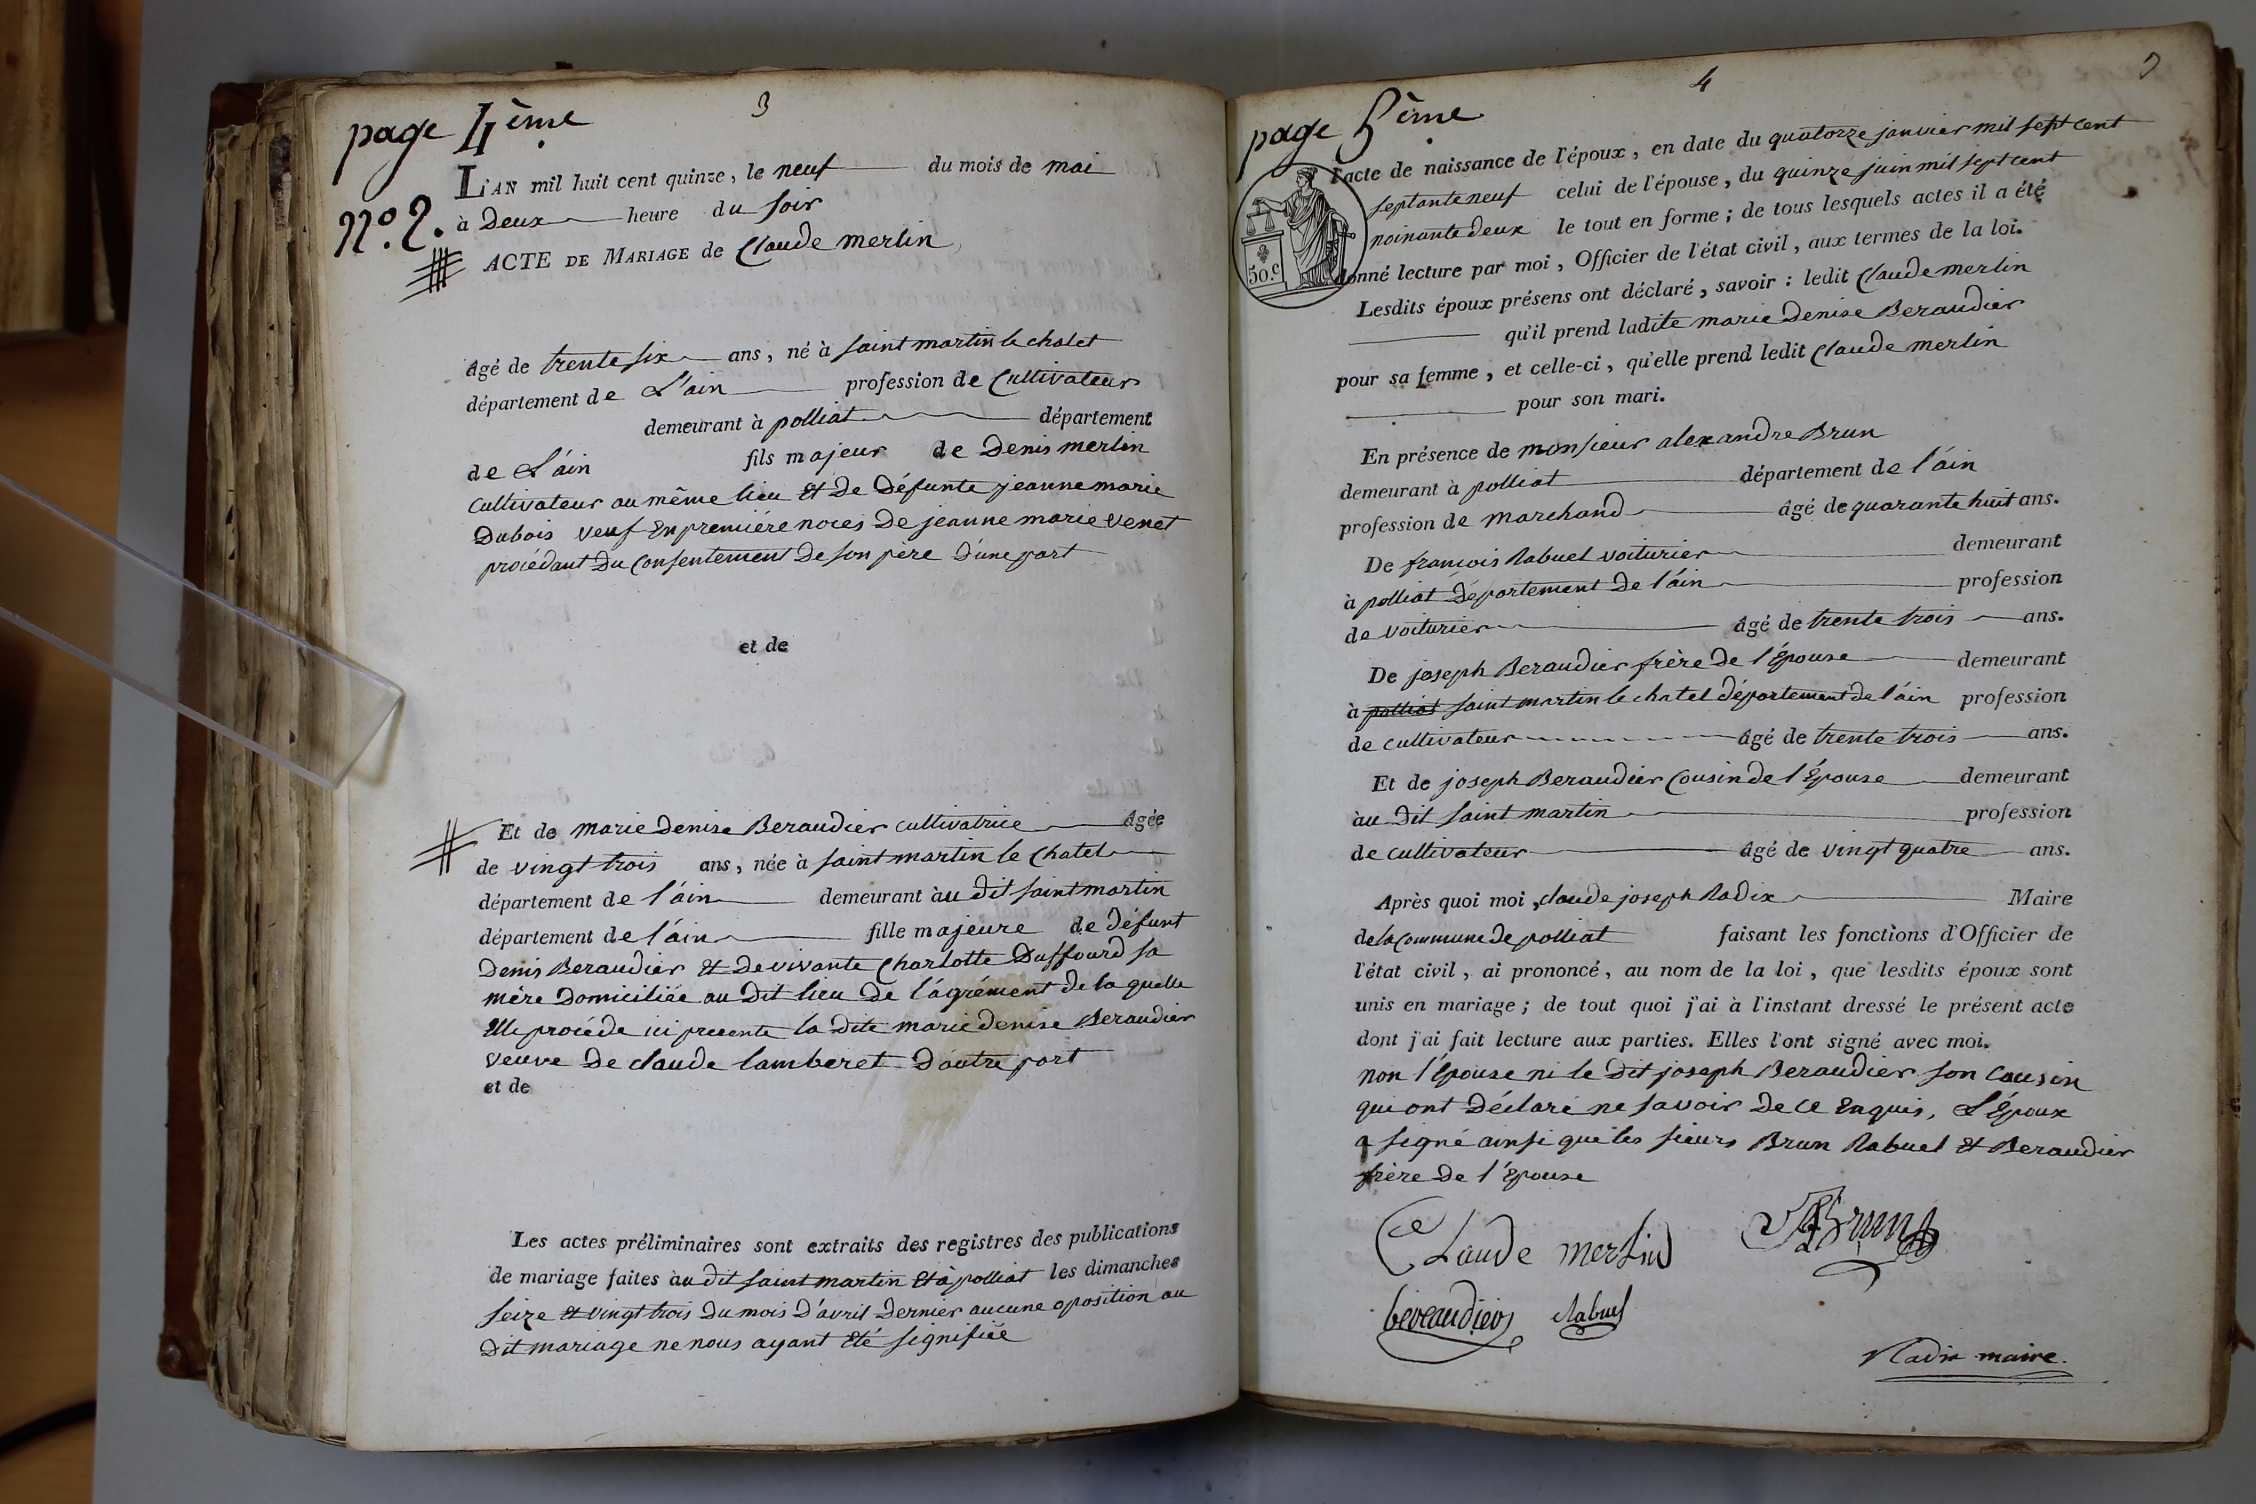 3
page 4ème
L'AN mil huit cent quinze, le neuf du mois de mai
N.º 2. à Deux heure du soir
ACTE DE MARIAGE de Claude merlin
âgé de trente six ans, né à saint martin le chatel
département de L'ain profession de Cultivateur
demeurant à polliat département
de L'áin fils majeur de Denis merlin
cultivateur au même lieu Et De Défunte jeanne marie
Dubois veuf En premiére noces De jeanne marie venet
procédant Du Consentement De son père D'une part
et de
Et de marie Denise Beraudier cultivatrice âgée
de vingt trois ans, née à saint martin le Chatel
département de l'áin demeurant àu dit saint martin
département de l'áin fille majeure de défunt
Denis Beraudier Et De vivante Charlotte Duffourd sa
mère Domiciliée au Dit lieu De l'ágrément de la quelle
Elle procéde ici presente la dite marie denise Beraudier
veuve De claude lamberet D'autre part
et de
Les actes préliminaires sont extraits des registres des publications
de mariage faites àu dit saint martin Et à polliat les dimanches
seize et vingt trois Du mois D'avril Dernier aucune oposition au
Dit mariage ne nous ayant Eté signifiée
4
page 5ème
l'acte de naissance de l'époux, en date du quatorze janvier mil sept cent
septante neuf celui de l'épouse, du quinze juin mil sept cent
noinante deux le tout en forme; de tous lesquels actes il a été
50.c donné lecture par moi, Officier de l'état civil, aux termes de la loi.
Lesdits époux présens ont déclaré, savoir: ledit Claude merlin
qu'il prend ladite marie Denise Beraudier
pour sa femme, et celle-ci, qu'elle prend ledit Claude merlin
pour son mari.
En présence de monsieur alexandre Brun
demeurant à polliat département de l'áin
profession de marchand âgé de quarante huit ans.
De françois Rabuel voiturier demeurant
à polliat Département De l'áin profession
de voiturier âgé de trente trois ans.
De joseph Beraudier frère De l'Épouse demeurant
à polliat saint martin le chatel département de l'áin profession
de cultivateur âgé de trente trois ans.
Et de joseph Beraudier Cousin de l'Épouse demeurant
àu dit saint martin profession
de cultivateur âgé de vingt quatre ans.
Après quoi moi, claude joseph Radix Maire
de la Commune de polliat faisant les fonctions d'Officier de
l'état civil, ai prononcé, au nom de la loi, que lesdits époux sont
unis en mariage; de tout quoi j'ai à l'instant dressé le présent acte
dont j'ai fait lecture aux parties. Elles l'ont signé avec moi.
non l'Épouse ni le Dit joseph Beraudier son Cousin
qui ont Déclaré ne savoir De ce Enquis, L'Époux
a signé ainsi que les sieurs Brun Rabuel Et Beraudier
frère De l'Épouse
Claude merlin ABrun
béreaudier Rabuel
Radix maire.